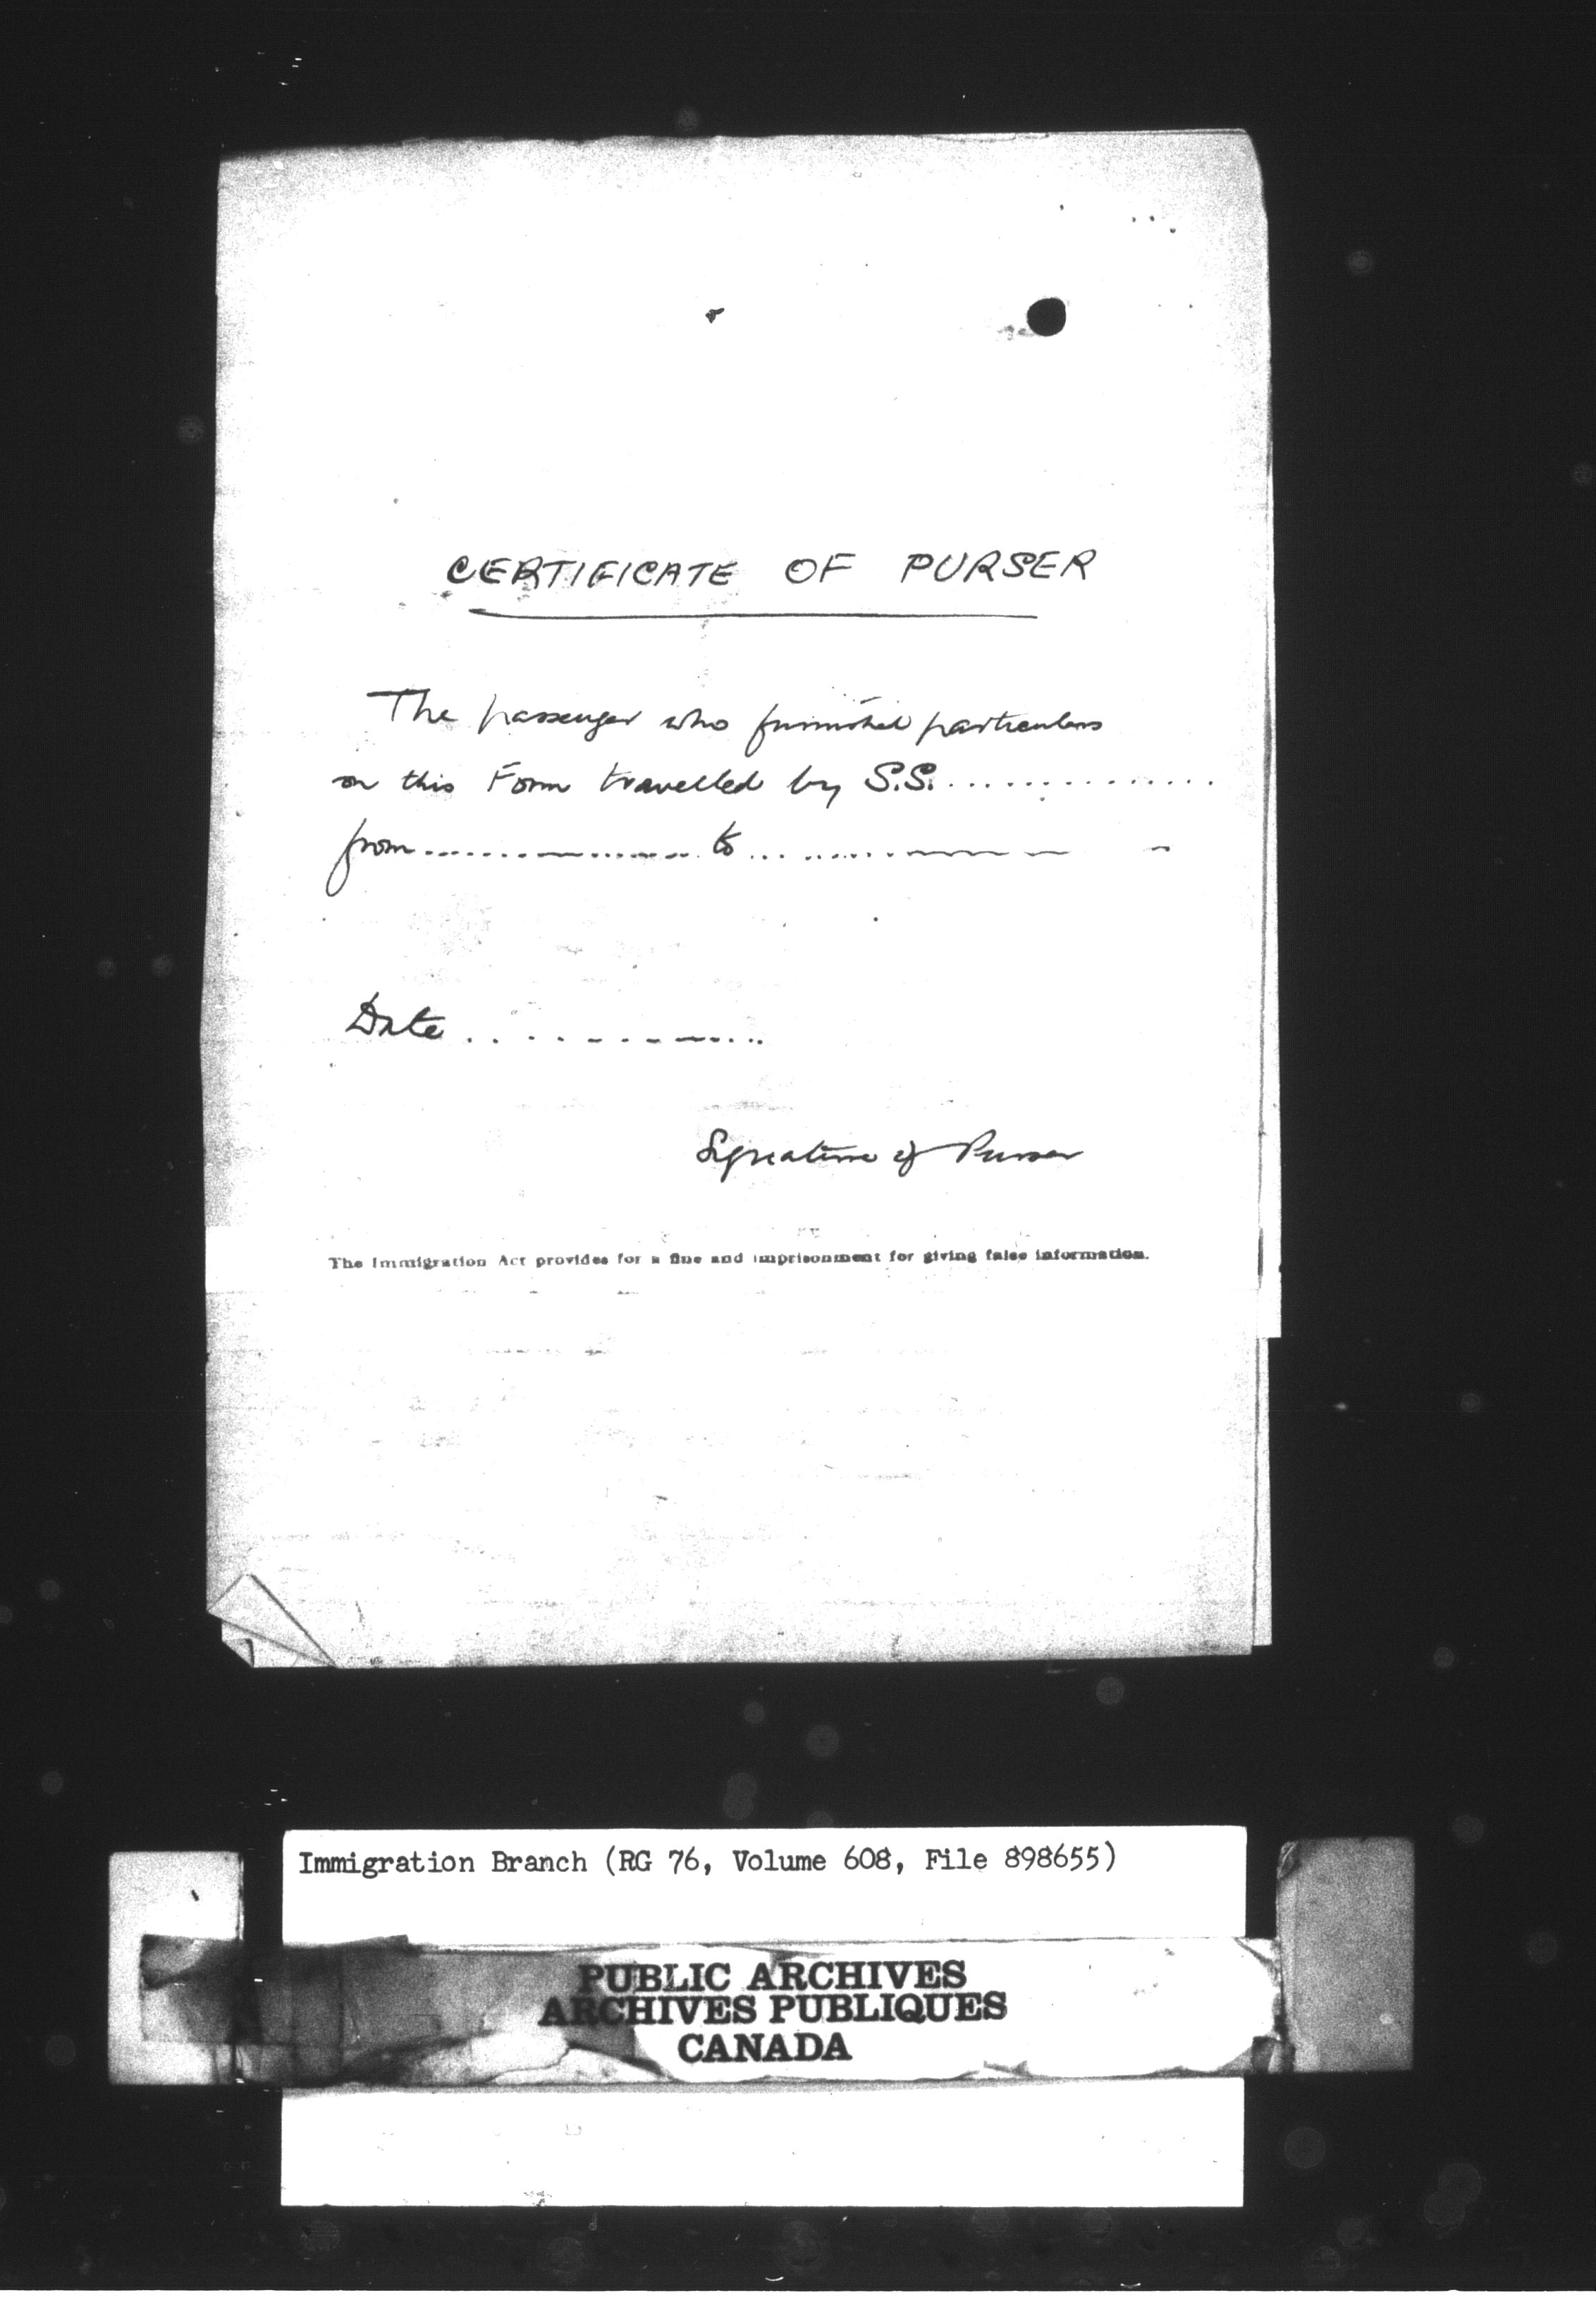 CERTIFICATE OF PURSER
The passenger who furnished particulars
on this Form travelled by S.S. ...............
from.................... to ....................
Date ....................
Signature of Purser
The Immigration Act provides for a fine and imprisonment for giving false information.
Immigration Branch (RG 76, Volume 608, File 898655)
PUBLIC ARCHIVES
ARCHIVES PUBLIQUES
CANADA